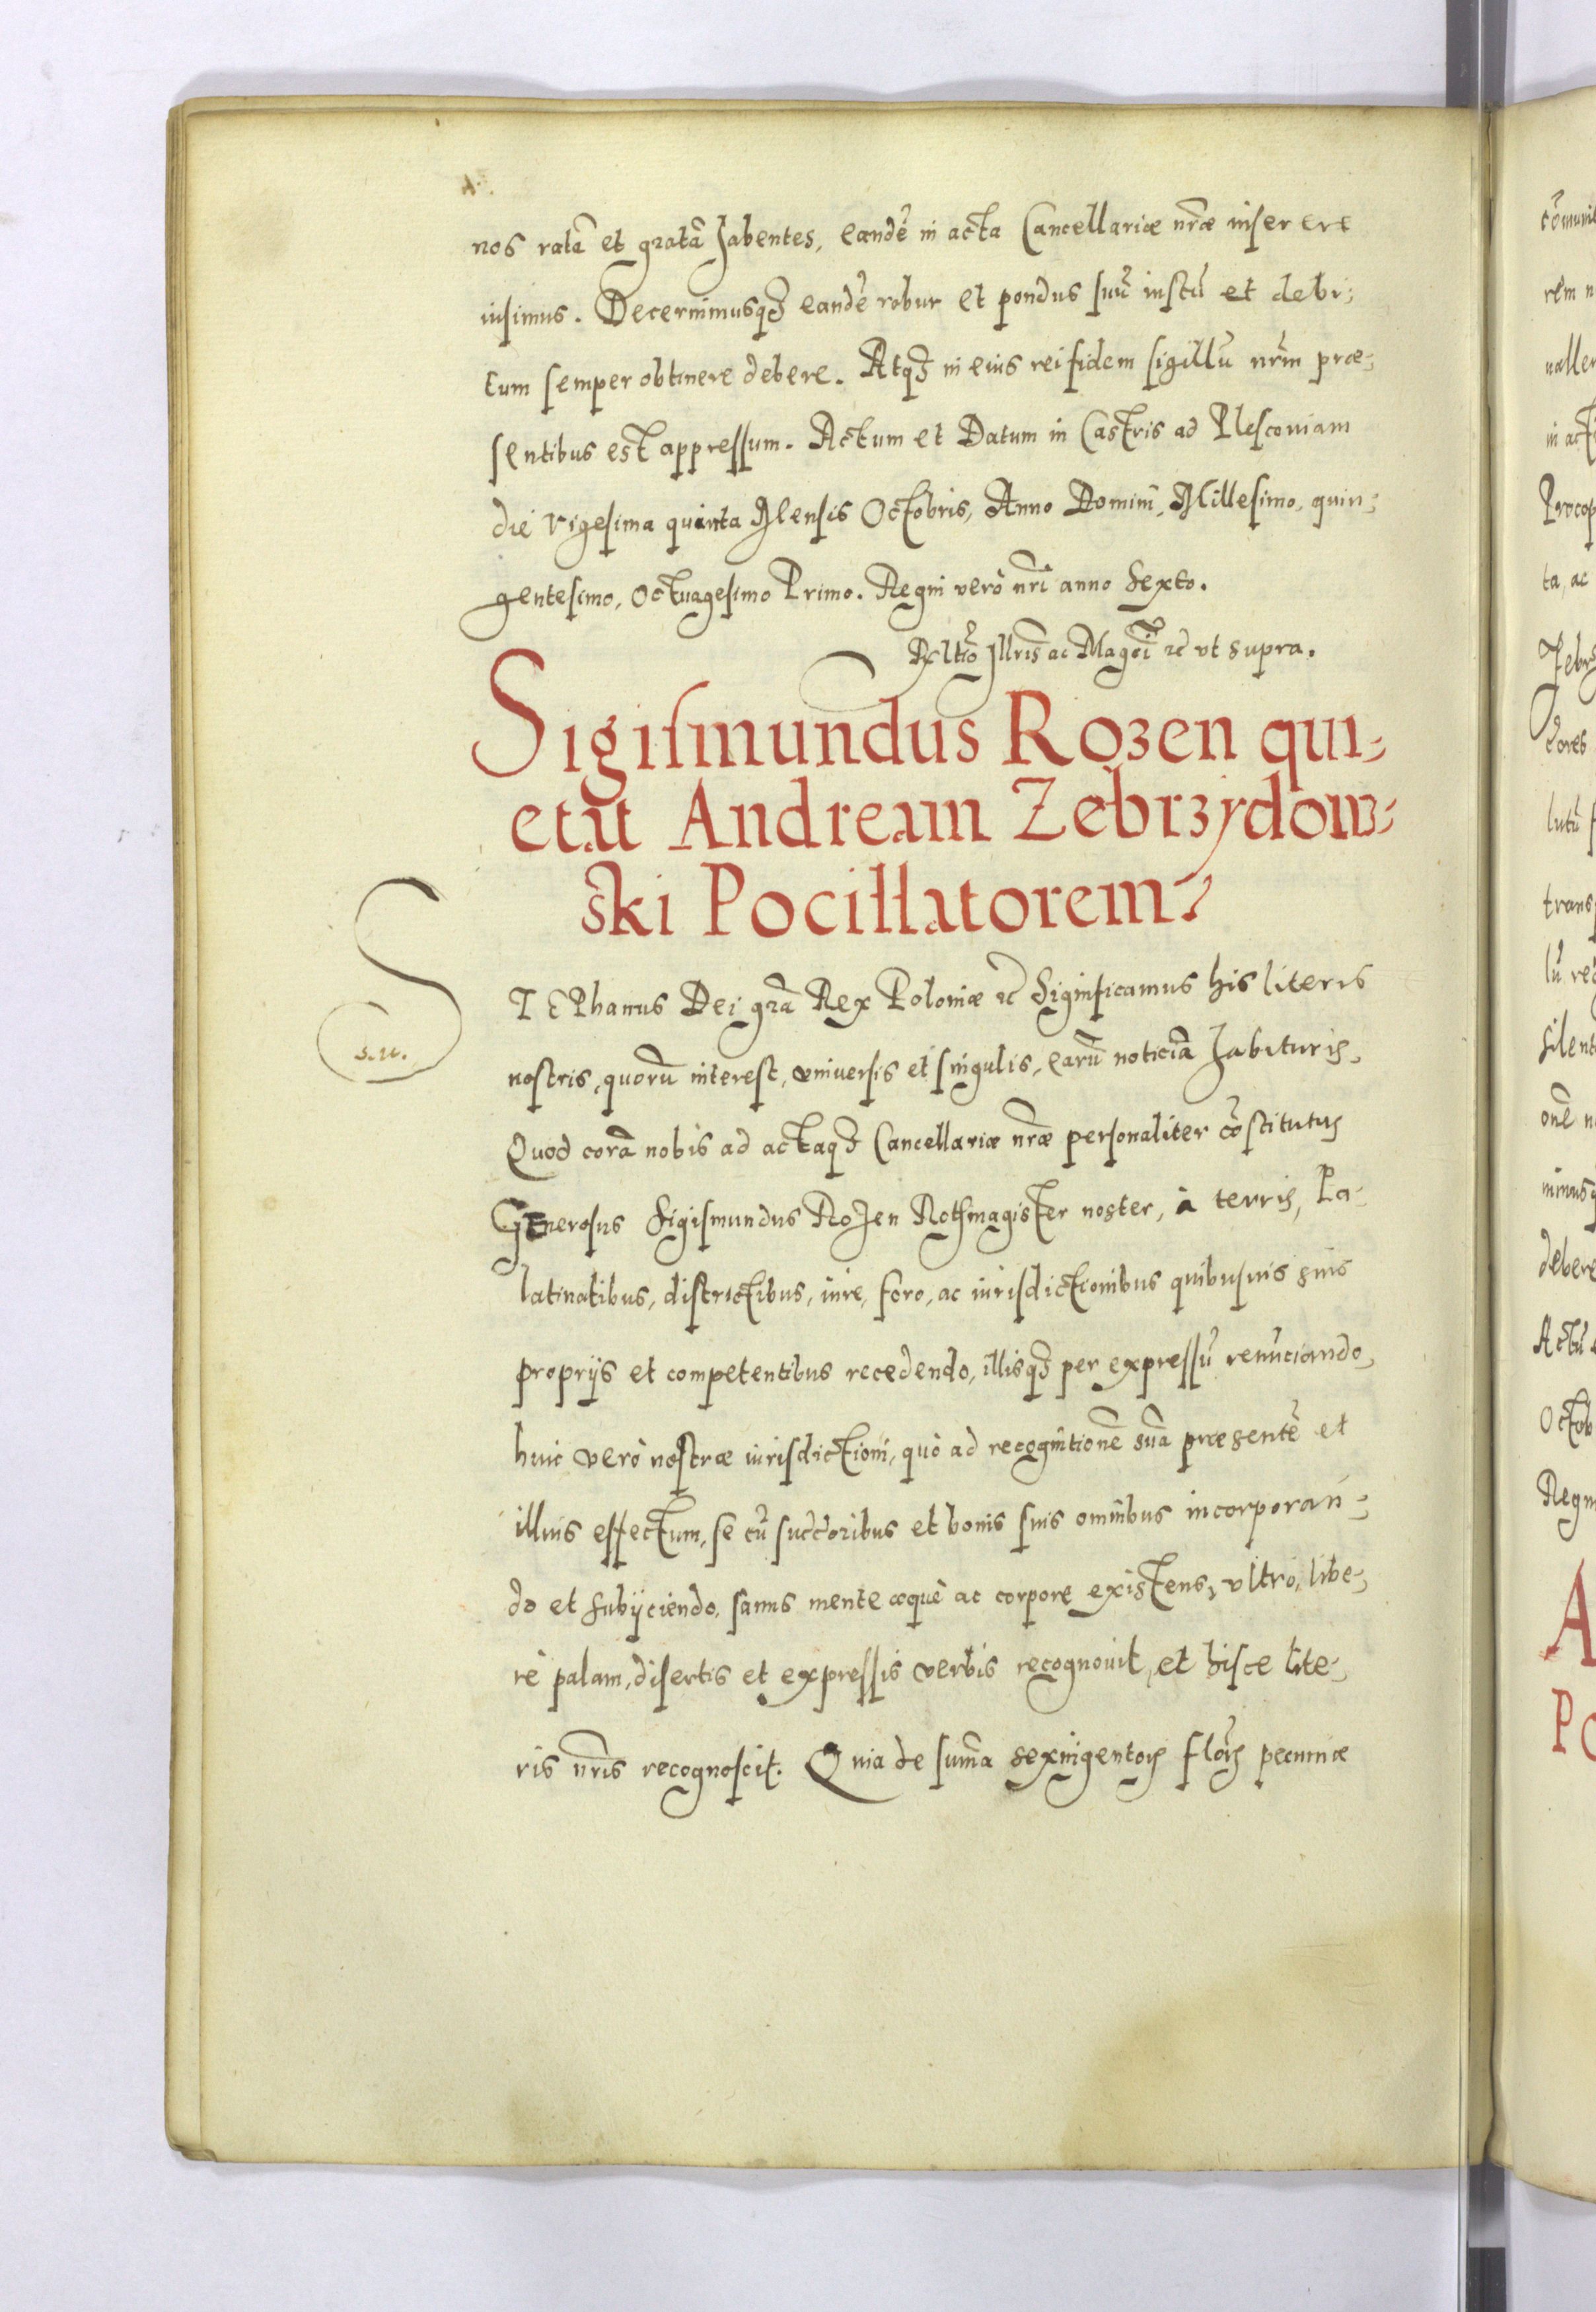 nos ratã et gratã habentes, eandẽ in acta Cancellariæ nr̃æ inserere
iusimus. Decernimusq; eandẽ robur et pondus suũ iustũ et debi-
tum semper obtinere debere. Atq; in eius rei fidem sigillũ nr̃m præ-
sentibus est appressum. Actum et Datum in Castris ad Plescouiam
die vigesima quinta Mensis Octobris, Anno Domini, Millesimo, quin-
gentesimo, Octuagesimo Primo. Regni verò nr̃i anno Sexto.
Rel̃tio Ill̃ris ac Mag̃ci &c̃ vt supra.
Sigismundus Rozen qui-
etat Andream Zebrzydow-
ski Pocillatorem
STEPhanus Dei gr̃a Rex Poloniæ &c̃ Significamus his literis
s.n.
nostris, quorũ interest, vniuersis et singulis, earũ noticiã habituris,
Quod corã nobis ad actaq; Cancellariæ nr̃æ personaliter cõstitutus
Generosus Sigismundus Rozen Rothmagister noster, à terris, Pa-
latinatibus, districtibus, iure, foro, ac iurisdictionibus quibusuis suis
proprijs et competentibus recedendo, illisq; per expressũ renũciando,
huic verò nostræ iurisdictioni, quò ad recognitionẽ suã præsentẽ et
illius effectum, se cũ succ̃oribus et bonis suis omnibus incorporan-
do et subijciendo, sanus mente æquè ac corpore existens, vltrò, libe-
rè palam, disertis et expressis verbis recognouit, et hisce lite-
ris nr̃is recognoscit. Quia de sum̃a sexingentor̃ flor̃ pecuniæ
cõmunit
rem n
naller
in act
Procop
ta, ac
Zebrz
dores
lutũ f
trans
lũ rec
silent
onẽ n
nimusq
debere
Actũ
Octob
Regni
A
Po